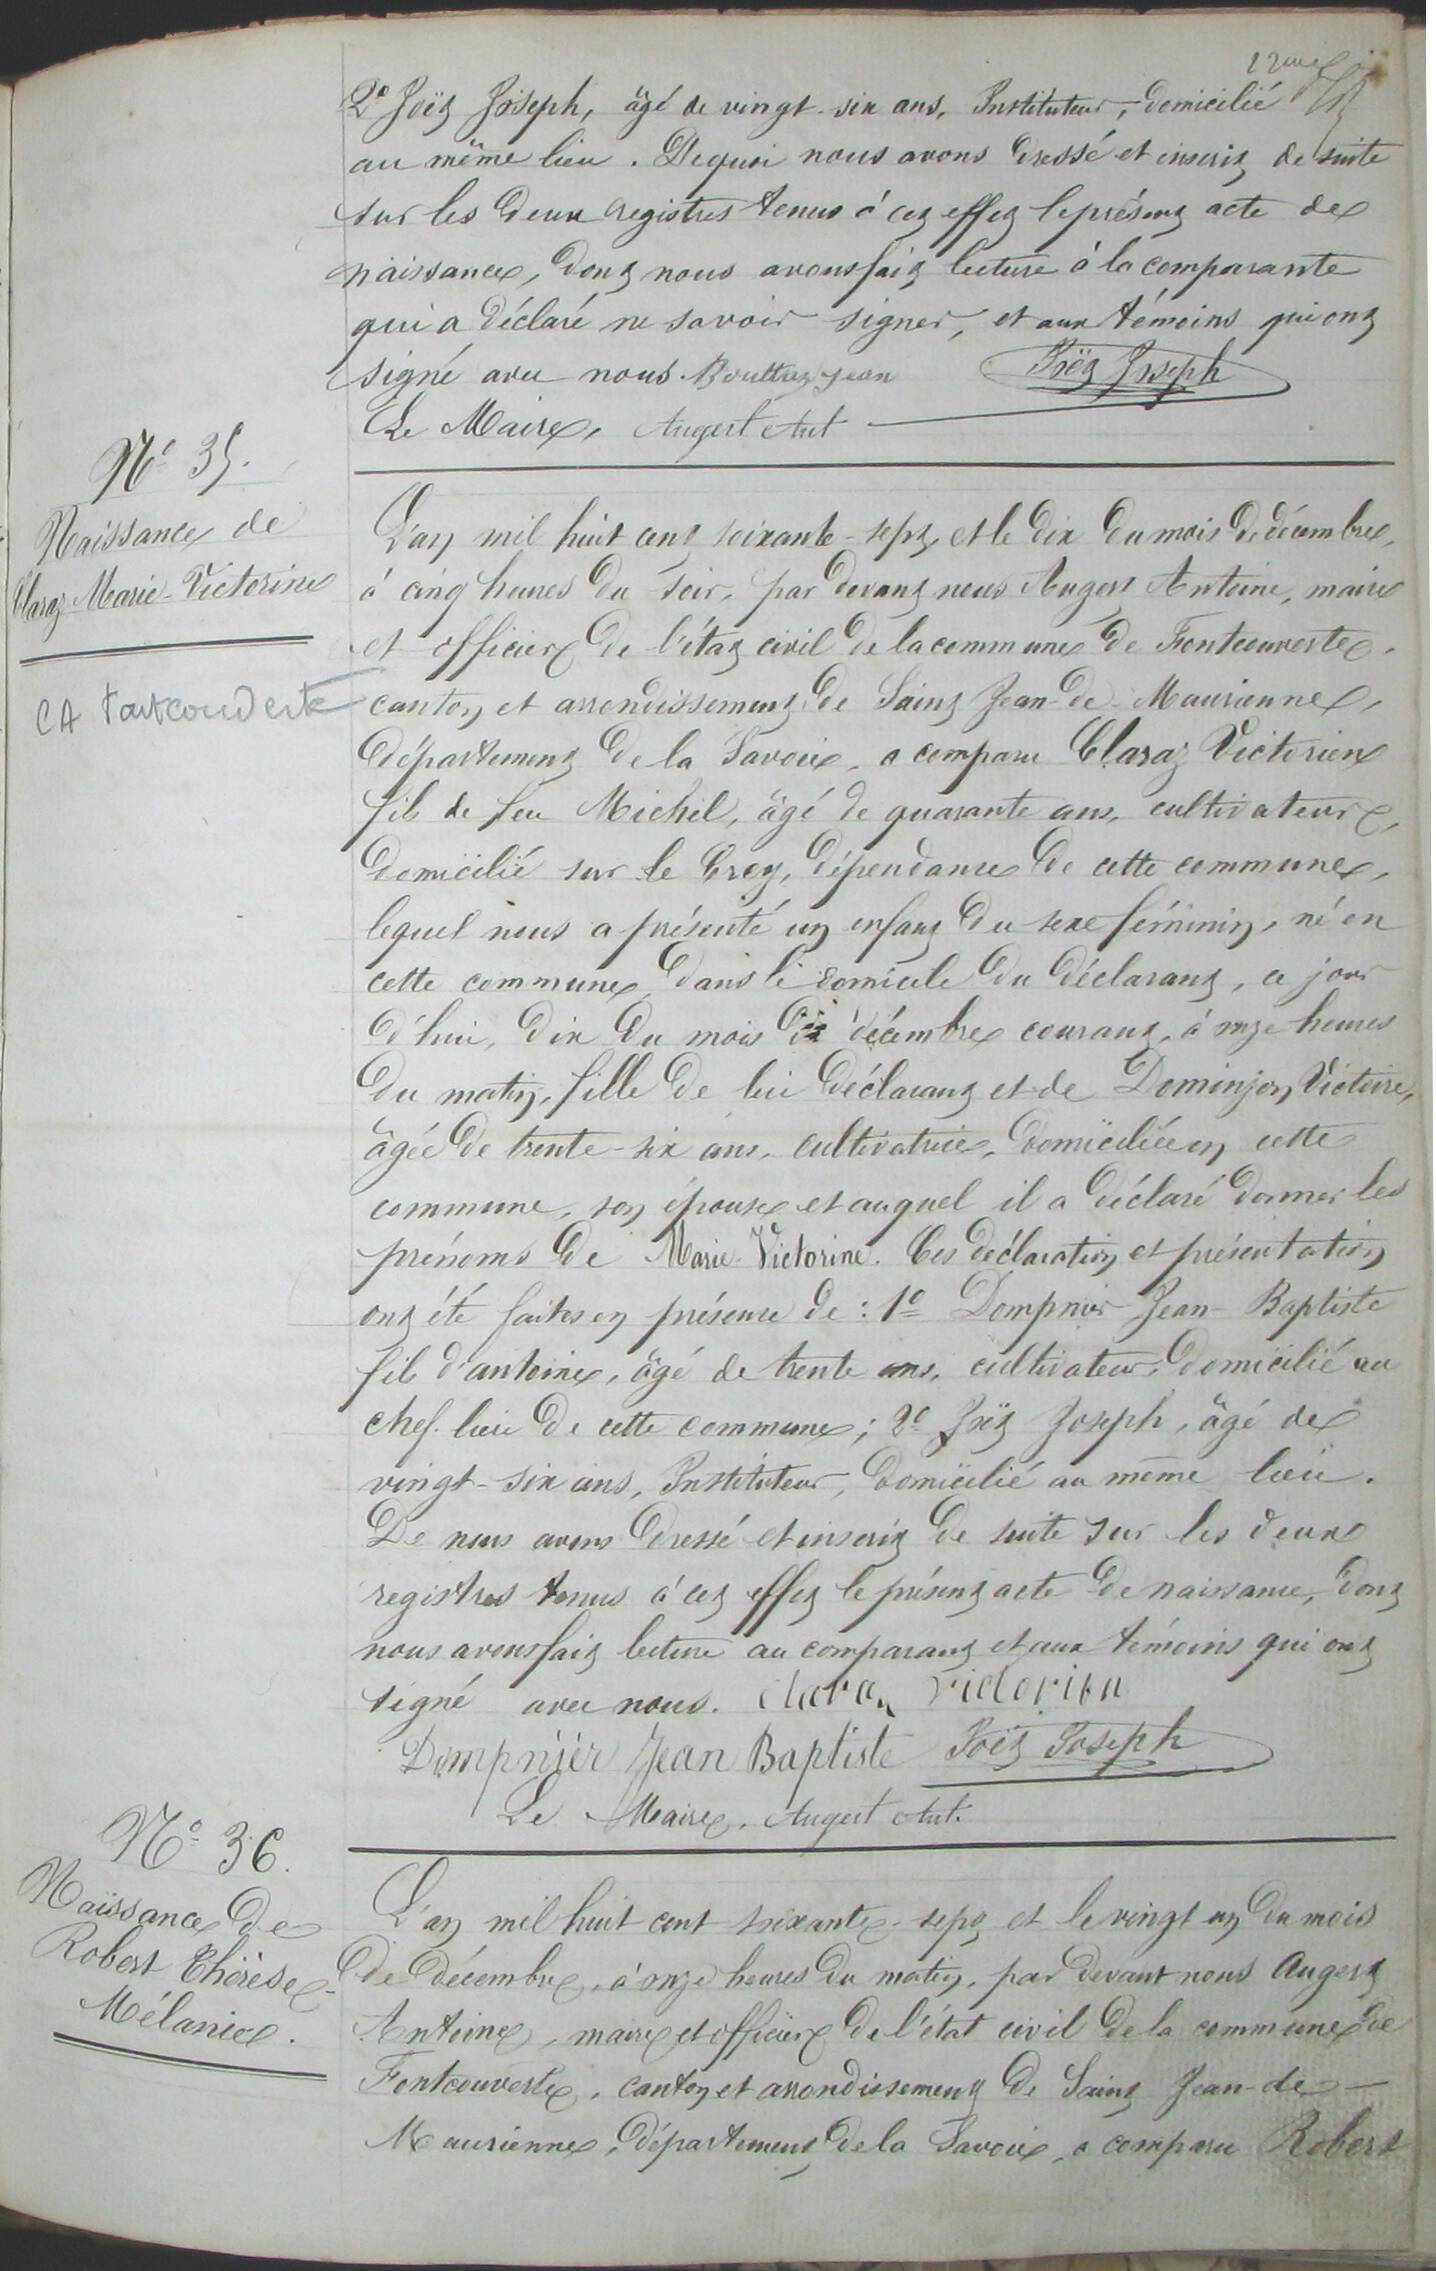 2° Joët Joseph, âgé de vingt-six ans, Instituteur, domicilié
au même lieu. De quoi nous avons dressé et inscrit de suite
sur les deux registres tenus à cet effet le présent acte de
naissance, dont nous avons fait lecture à la comparante
qui a déclaré ne savoir signer, et aux témoins qui ont
signé avec nous. Bouttaz Jean Joët Joseph
Le Maire, Augert Ant
N° 35.
Naissance de
Claraz Marie-Victorine
CA Fontcouverte
L'an mil huit cent soixante-sept et le dix du mois de décembre,
à cinq heures du soir, par devant nous Augert Antoine, maire
et officier de l'état civil de la commune de Fontcouverte,
canton et arrondissement de Saint Jean-de-Maurienne,
département de la Savoie, a comparu Claraz Victorien
fils de feu Michel, âgé de quarante ans, cultivateur,
domicilié sur le Crey, dépendance de cette commune,
lequel nous a présenté un enfant du sexe féminin, né en
cette commune, dans le domicile du déclarant, ce jour
d'hui, dix du mois de décembre courant, à onze heures
du matin, fille de lui déclarant et de Dominjon Victoire,
âgée de trente-six ans, cultivatrice, domiciliée en cette
commune, son épouse et auquel il a déclaré donner les
prénoms de Marie-Victorine. Ces déclaration et présentation
ont été faites en présence de : 1° Dompnier Jean-Baptiste
fils d'antoine, âgé de trente ans, cultivateur, domicilié au
chef-lieu de cette commune; 2° Joët Joseph, âgé de
vingt-six ans, Instituteur, domicilié au même lieu.
De nous avons dressé et inscrit de suite sur les deux
registres tenus à cet effet le présent acte de naissance, dont
nous avons fait lecture au comparant et aux témoins qui ont
signé avec nous. Claraz Victorien
Dompnier Jean Baptiste Joët Joseph
Le Maire, Augert Ant.
N° 36.
Naissance de
Robert Thérèse-
Mélanie.
L'an mil huit cent soixante-sept et le vingt un du mois
de décembre, à onze heures du matin, par devant nous Augert
Antoine, maire et officier de l'état civil de la commune de
Fontcouverte, canton et arrondissement de Saint Jean-de-
Maurienne, département de la Savoie, a comparu Robert